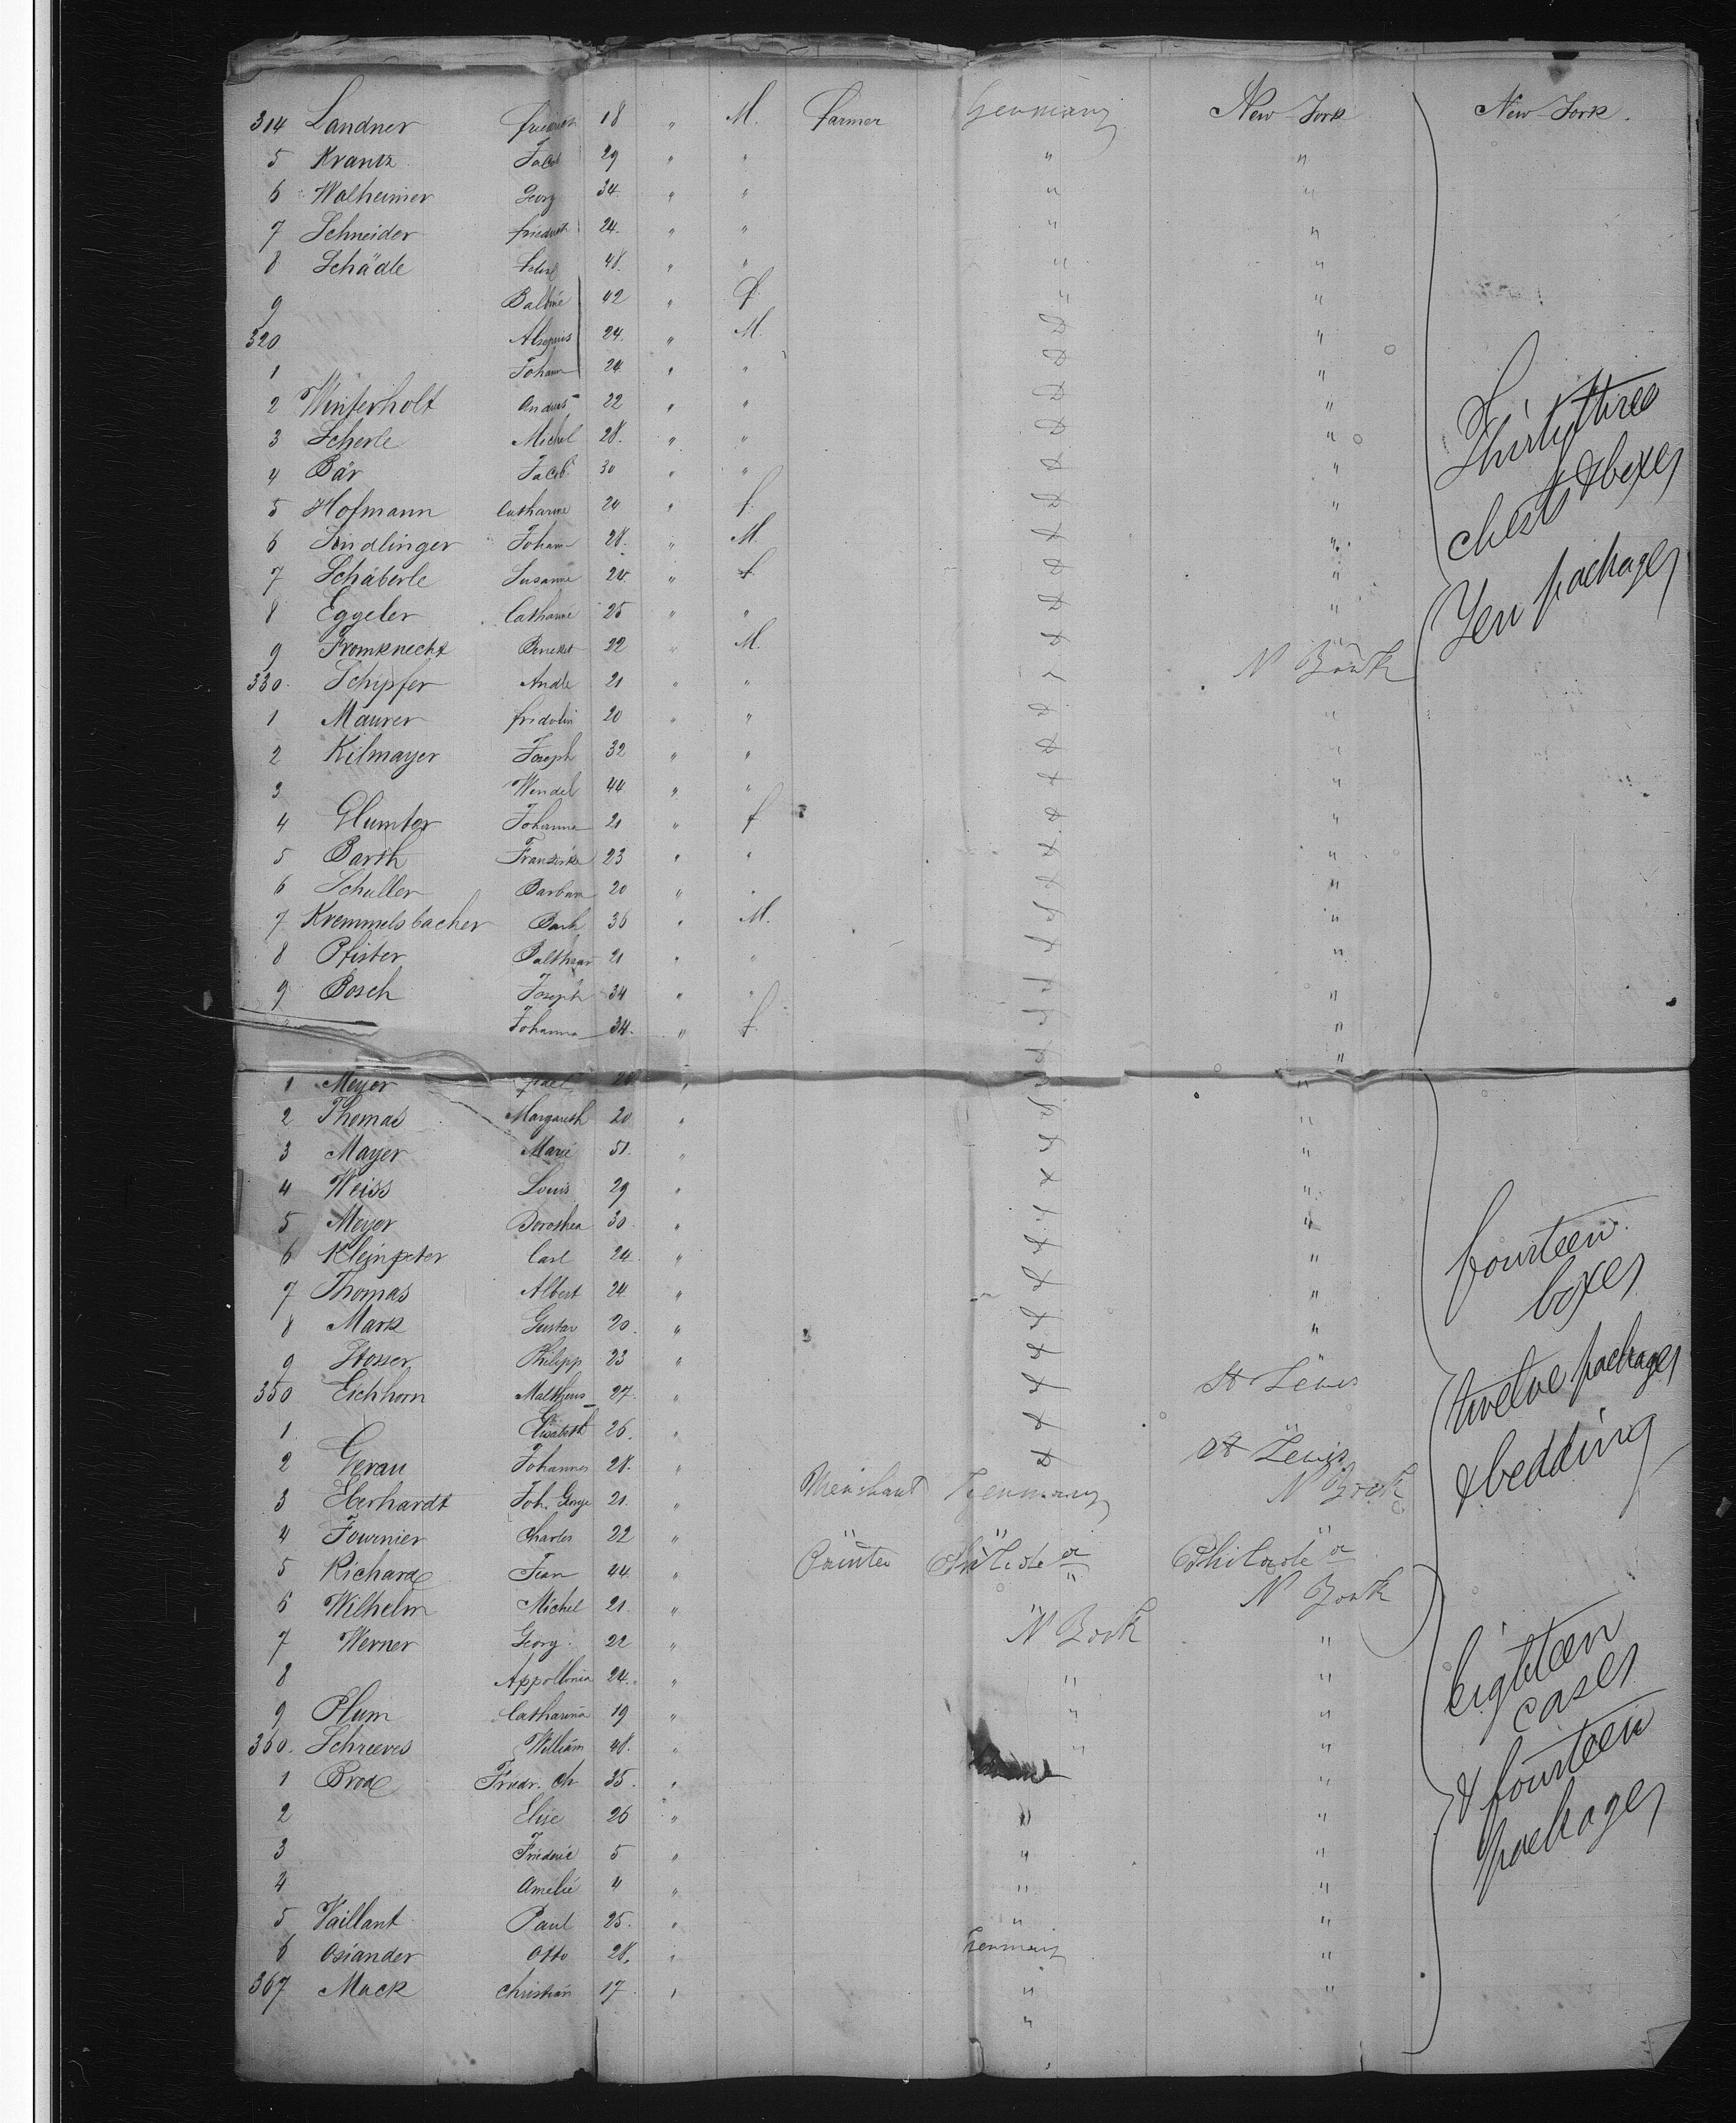 314 Landner Friedrich 18 " M. Farmer Germany New York New York.
5 Krantz Jacob 29 " " " "
6 Walheimer Georg 34. " " " "
7 Schneider Friedrich 24. " " " "
8 Schädle 48. " " " "
9 42 " f. " "
320 24. " M. "
1 Johann 24 " " "
2 Winterholt Andreas 22 " " "
3 Scherle Michel 28. " " "
4 Bär Jacob 30 " " "
5 Hofmann Catharine 24 " f. "
6 Johann 28. " M. "
7 Schäberle Susanne 24. " f. "
8 Eggeler Catharine 25 " " "
9 Fromknecht 22 " M. N York
330. Schipfer Andle 21 " "
1 Maurer fridolin 20 " " "
2 Kilmayer Joseph 32 " " "
3 Wendel 44 " " "
4 Glumter Johanna 21 " f "
5 Barth Franziska 23 " " "
6 Schuller Barbara 20 " " "
7 Kremmelsbacher 36 " M. "
8 Pfister Balthasar 21 " " "
9 Bosch Joseph 34 " " "
Johanna 34. " f. "
Thirty three
chests & boxes
Ten packages
1 Meyer "
2 Thomas Margareth 20 " "
3 Mayer Marie 51. " "
4 Weiss Louis 29 " "
5 Meyer Dorothea 30. " "
6 Kleinpeter Carl 24. " "
7 Thomas Albert 24 " "
8 Mark Gustav 20. " "
9 Philipp 23 "
350 Eichhorn Mattheus 27. " St Lewis
1. Elisabeth 26. " "
2 Gerau Johannes 28. " St Lewis
3 Eberhardt Joh. George 21. " Merchant Germany N York
4 Fournier Charles 22 " " " "
5 Richard Jean 44. " Philade Philade
6 Wilhelm Michel 21. " " N York
7 Werner Georg. 22 " N York "
8 Appollonia 24. " " "
9 Plum Catharina 19 " " "
360. Schreeves William 48. " " "
1 Brod Friedr. Ch 35. " "
2 Elise 26 " " "
3 5 " " "
4 Amelie 4 " " "
5 Vaillant Paul 25. " " "
6 Osiander Otto 28. " Germany "
367 Mack Christian 17. " " "
"
fourteen
boxes
twelve packages
& bedding
Eighteen
cases
& fourteen
packages